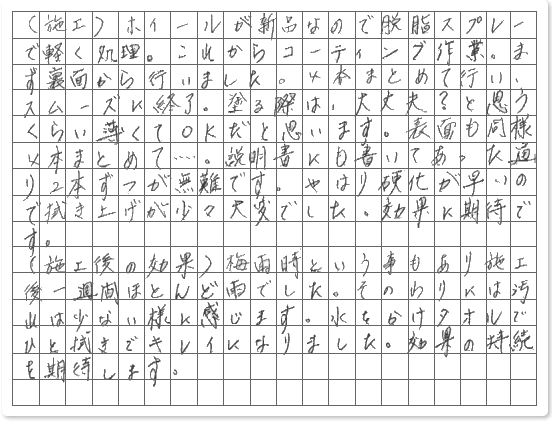 (施工)ホイールが新品なので脱脂スプレー
で軽く処理。これからコーティング作業。ま
ず裏面から行いました。4本まとめて行い、
スムーズに終了。塗る際は、大丈夫?と思う
くらい薄くてOKだと思います。表面も同様
4本まとめて……。説明書にも書いてあった通
り2本ずつが無難です。やはり硬化が早いの
で拭き上げが少々大変でした。効果に期待で
す。
(施工後の効果)梅雨時という事もあり施工
後一週間ほとんど雨でした。そのわりには汚
れは少ない様に感じます。水をかけタオルで
ひと拭きでキレイになりました。効果の持続
を期待します。